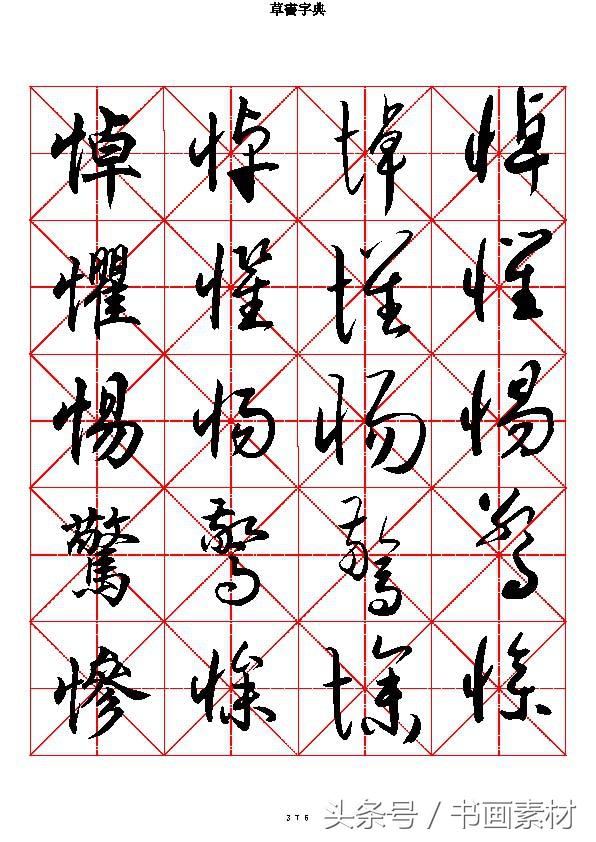 草書字典
悼悼悼悼
懼懼懼懼
惕惕惕惕
驚驚驚驚
慘慘慘慘
376
头条号 / 书画素材